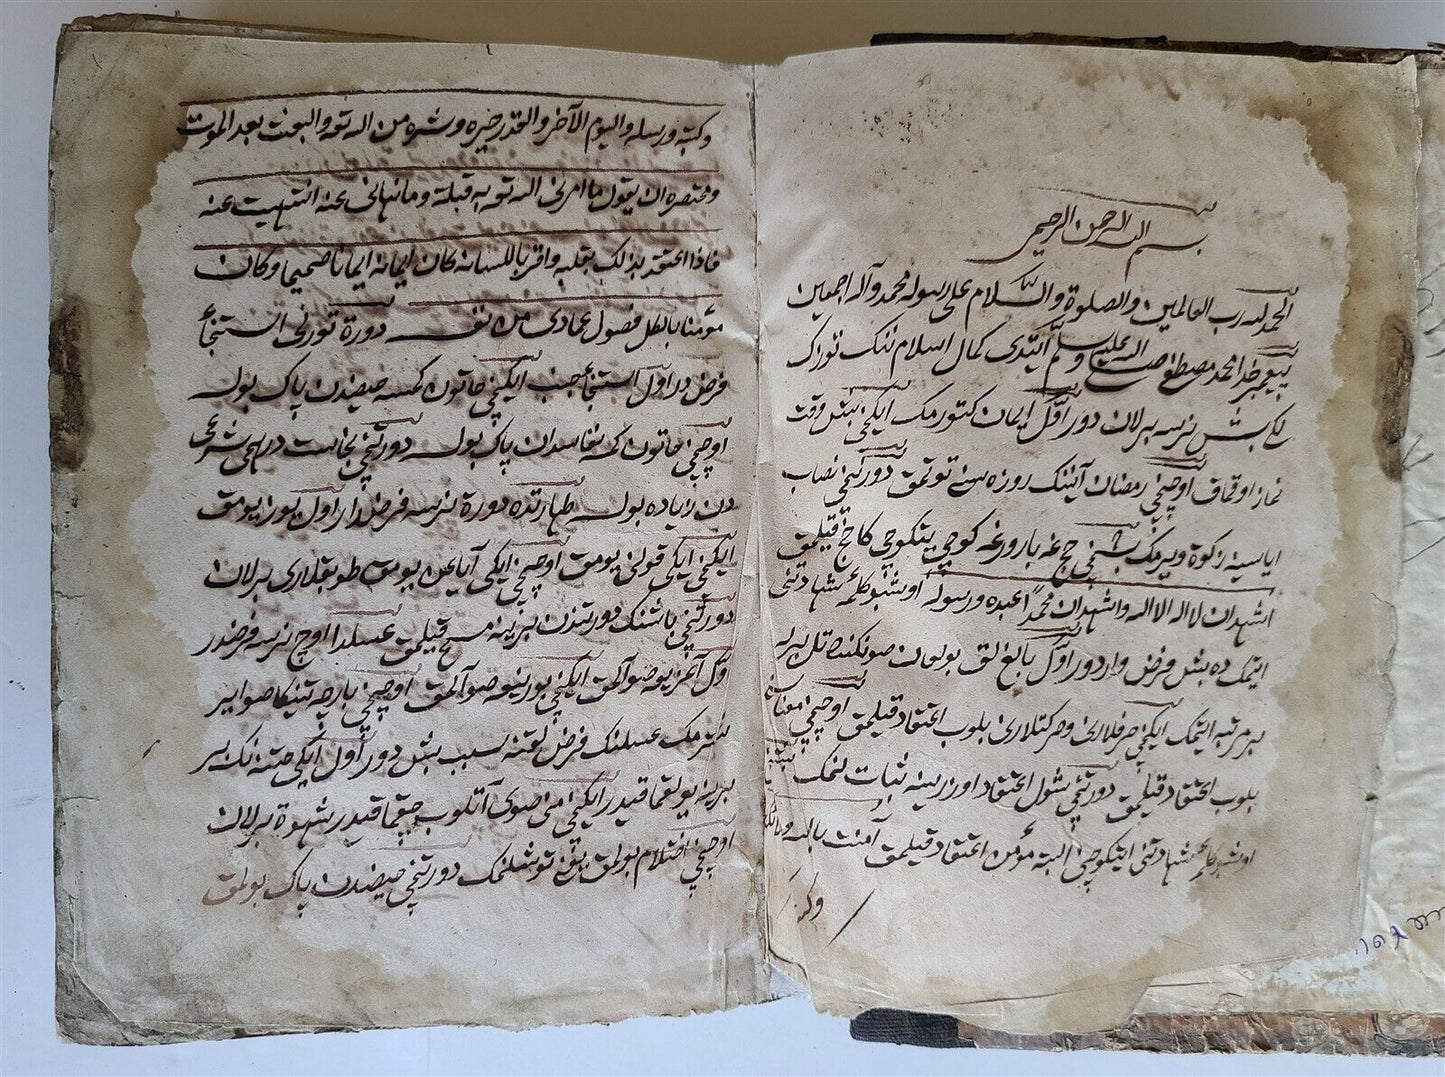 بسم الله الرحمن الرحيم
الحمد لله رب العالمين والصلوة والسلام على رسوله محمد وآله اجمعين
پيغمبر خدا محمد مصطفى صلى الله عليه وسلم ايتدى كمال اسلام ننك توراك
لكى بش نرسه برلان دور اوّل ايمان كتورمك ايكنچى بيش وقت
نماز اوقماق اوچنچى رمضان آيننك روزه سنى توتمق دورتنچى نصاب
اياسينه زكوة ويرمك بشنچى حج غه بارورغه كوچى يتكوچى كا حج قيلمق
اشهد ان لا اله الا الله واشهد ان محمداً عبده ورسوله اوشبو كلمه شهادتنى
ايتمك ده بيش فرض واردور اوّل بالغ لق بولغان صونكنده تل برله
بر مرتبه ايتمك ايكنچى حرفلارى وحركتلارى بلوب اعتقاد قيلمق اوچنچى معناسنى
بلوب اعتقاد قيلمق دورتنچى شول اعتقاد اوزرينه ثبات لنمك بيشنچى
اوشبو كلمه شهادتنى ايتكوچنى البته مؤمن اعتقاد قيلمق آمنت بالله وملائكته
وكتبه
وكتبه ورسله واليوم الآخر والقدر خيره وشره من الله تع والبعث بعد الموت
ومختصره ان يقول ما امرنى الله تع به قبلته وما نهانى عنه انتهيت عنه
فاذا اعتقد بذلك بقلبه واقر باللسانه كان ايمانه ايمانا صحيحا وكان
مؤمنا بالكل فصول عمادى من نفسه دورة تورلى استنجاء
فرض در اوّل استنجاء جنب ايكنچى خاتون كمسه حيضدن پاك بولسه
اوچنچى خاتون كمسه نفاسدان پاك بولسه دورتنچى نجاست درهمى شرعى
دن زياده بولسه طهارتده دورة نرسه فرض دار اول يوزن يومق
ايكنچى ايكى قولنى يومق اوچنچى ايكى آياغن يومق طوبقلارى برلان
دورتنچى باشننك دورتدن بريينه مسح قيلمق غسلدا اوچ نرسه فرضدر
اوّل آغزيغه صو آلمق ايكنچى بورنيغه صو آلمق اوچنچى بارچه تنيكا صو ايير
يتشترمك غسلننك فرض لغنه سبب بيش دور اول ايكى ختنه ننك بر
برينه يولغماقيدر ايكنچى منى صوى آتلوب چقماقيدر شهوة برلان
اوچنچى احتلام بولمق يعنى توشلنمك دورتنچى حيضدن پاك بولمق